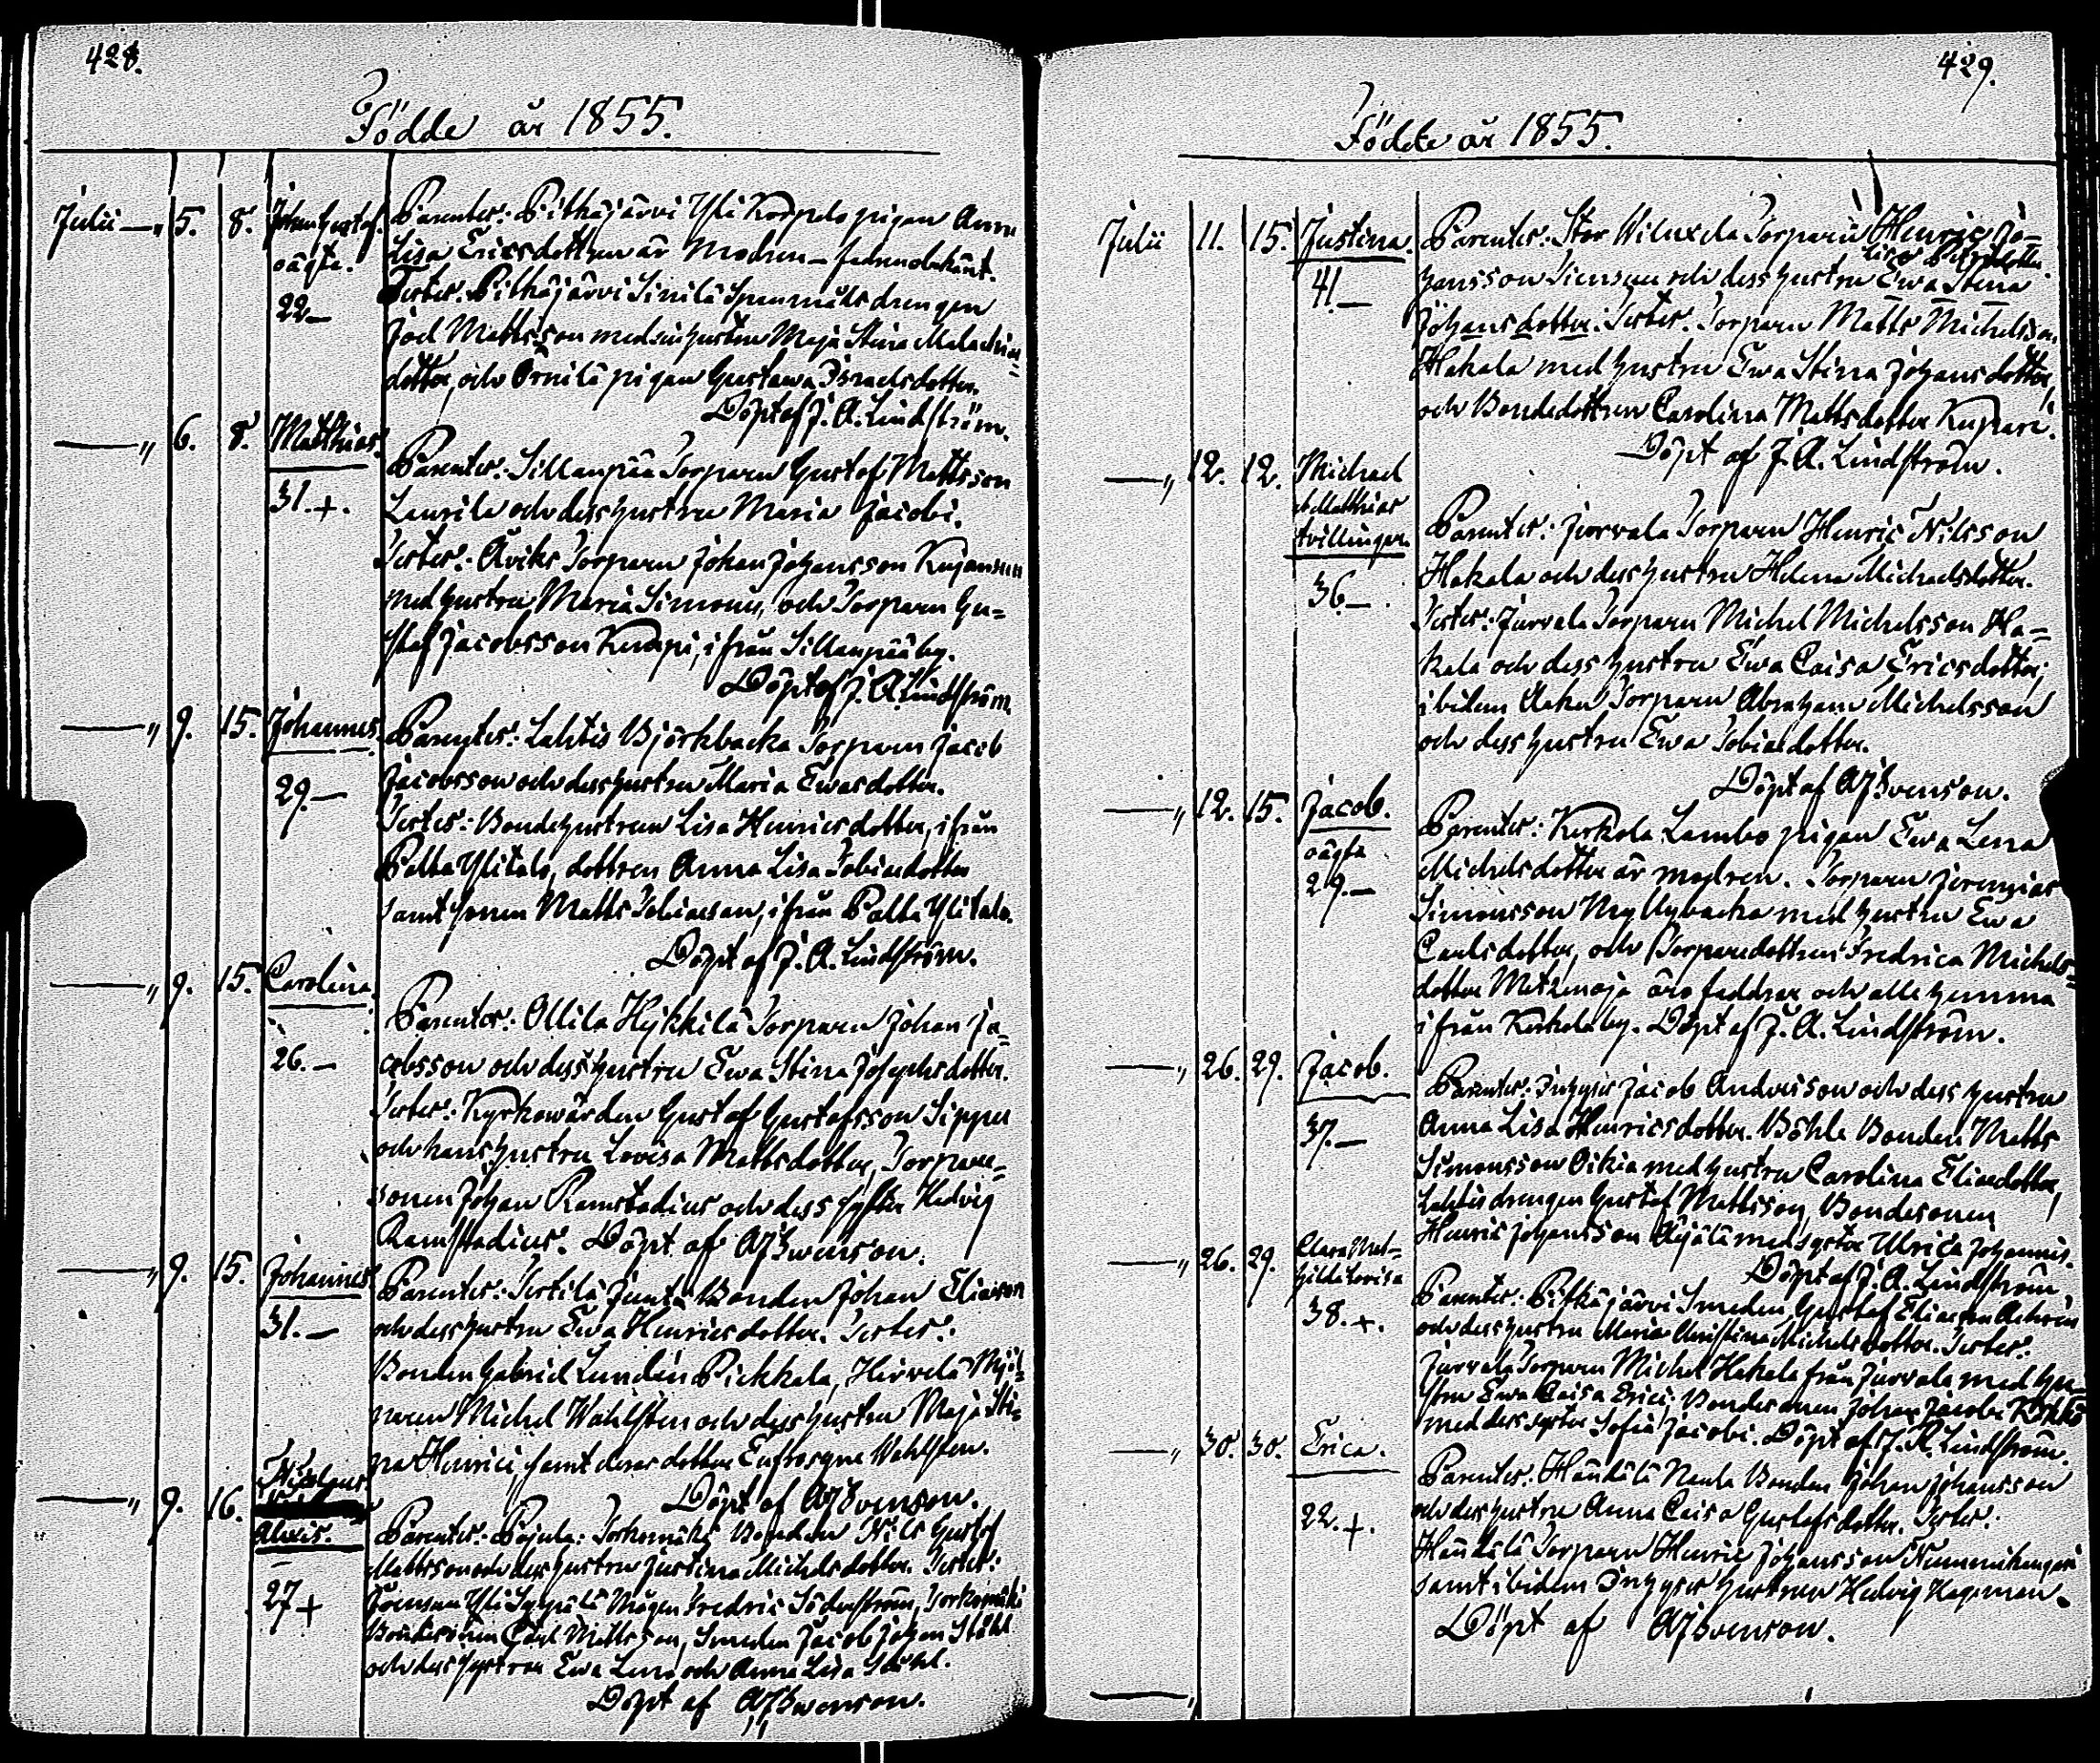 428.
Födde år 1855.
Julii — „ 5. 8. Johan Gustaf. oägta. 22 —
Parenter: Pitkäjärvi Yli Korpelo pigan Anna
Lisa Ericsdotter är Modren — fadren obekänt.
Testes: Pitkäjärvi drengen
Joel Mattsson med sin hustru Maja Stina
dotter, och Örnilä pigan Gustawa Israelsdotter.
Döpt af J. A. Lindström.
— „ 6. 8. Matthias. 31. +.
Parenter: Sillanpää Torparen Gustaf Mattsson
Laurila och dess hustru Maria Jacobi.
Testes: Äviks Torparen Johan Johansson Kujansuu
med hustru Maria Simons, och Torparen Gu=
staf Jacobsson Kemppi, ifrån Sillanpää by.
Döpt af J. A. Lindström.
— „ 9. 15. Johannes. 29. —
Parenter: Lahtis Björkbacka Torparen Jacob
Jacobsson och dess hustru Maria Ewasdotter.
Testes: Bondehustrun Lisa Henricsdotter, ifrån
Palta Ylitalo, dottren Anna Lisa Tobiasdotter
samt sonen Matts Tobiasson, ifrån Palta Ylitalo.
Döpt af J. A. Lindström.
— „ 9. 15. Carolina. 26. —
Parenter: Ollila Hykkilä Torparen Johan Ja=
cobsson och dess hustru Ewa Stina Josephsdotter.
Testes: Kyrkowärden Gustaf Gustafsson Sippu
och hans hustru Lovisa Mattsdotter, Torpare=
sonen Johan Ramstadius och dess syster Hedvig
Ramstadius. Döpt af AJSwenson.
— „ 9. 15. Johannes. 31. —
Parenter: Tertilä Junta Bonden Johan Eliasson
och dess hustru Ewa Henricsdotter. Testes:
Bonden Gabriel Lundén Pickkala, Hirvelä Mjöl=
naren Michel Wahlsten och dess hustru Maja Sti=
na Henrici, samt deras dotter Eufrosyne Wahlsten.
Döpt af AJSvenson.
— „ 9. 16. Nicolaus Alexis. 27 +
Parenter: Pajula: Torkomäki Bonden Nils Gustaf
Mattsson och dess hustru Justina Michelsdotter. Testes:
Forensen Yli Sepälä Mågen Fredric Söderström, Torkomäki
Bondesonen Carl Mattsson, Smeden Jacob Johan Ståhl
och dess systrar Ewa Lena och Anna Lisa Ståhl.
Döpt af AJSwenson.
429.
Födde år 1855.
Julii 11. 15. Justina. 41 —
Parenter: Stor Wiluxela Torparen Henric Jo=
hansson Siensuu och dess hustru Ewa Stina
Johansdotter. Testes: Torparen Matts Michelsson
Hakala med hustru Ewa Stina Johansdotter,
och Bondedottren Carolina Mattsdotter Kupari.
Döpt af J. A. Lindström.
— „ 12. 12. Michael et Matthias tvillingar. 36. —
Parenter: Jurvala Torparen Henric Nilsson
Hakala och dess hustru Helena Michaelsdotter.
Testes: Jurvala Torparen Michel Michelsson Ha=
kala och dess hustru Ewa Caisa Ericsdotter;
ibidem Torparen Abraham Michelsson
och dess hustru Ewa Tobiasdotter.
Döpt af AJSvenson.
— „ 12. 15. Jacob. oägta 29. —
Parenter: Kerkola Lambo pigan Ewa Lena
Michelsdotter är modren. Torparen Jeremias
Simonsson Myllybacka med hustru Ewa
Carlsdotter, och Torparedottren Fredrica Michels=
dotter Metzenoja äro faddrar och alle hemma
ifrån Kerkola by. Döpt af J. A. Lindström.
— „ 26. 29. Jacob. 37. —
Parenter: Inhyses Jacob Andersson och dess hustru
Anna Lisa Henricsdotter. Böhle Bonden Matts
Simonsson Oikia med hustru Carolina Eliasdotter,
Lahtis drengen Gustaf Mattsson, Bondesonen
Henric Johansson Äijälä med syster Ulrica Johannis.
Döpt af J. A. Lindström
— „ 26. 29. Clara Mat= hilda Lovisa 38. +.
Parenter: Pitkäjärvi Smeden Gustaf Eliasson
och dess hustru Maria Christina Michelsdotter. Testes:
Jurvala Torparen Michel Hakala från Jurvala med hu=
stru Ewa Caisa Erici, Bondesonen Johan Jacobi
med dess syster Sofia Jacobi. Döpt af J. A. Lindström.
— „ 30. 30. Erica. 22. +.
Parenter: Händälä Bonden Johan Johansson
och dess hustru Anna Caisa Gustafsdotter. Testes:
Händälä Torparen Henric Johansson
samt ibidem Inhyses hustrun Hedvig Hageman.
Döpt af AJSvenson.